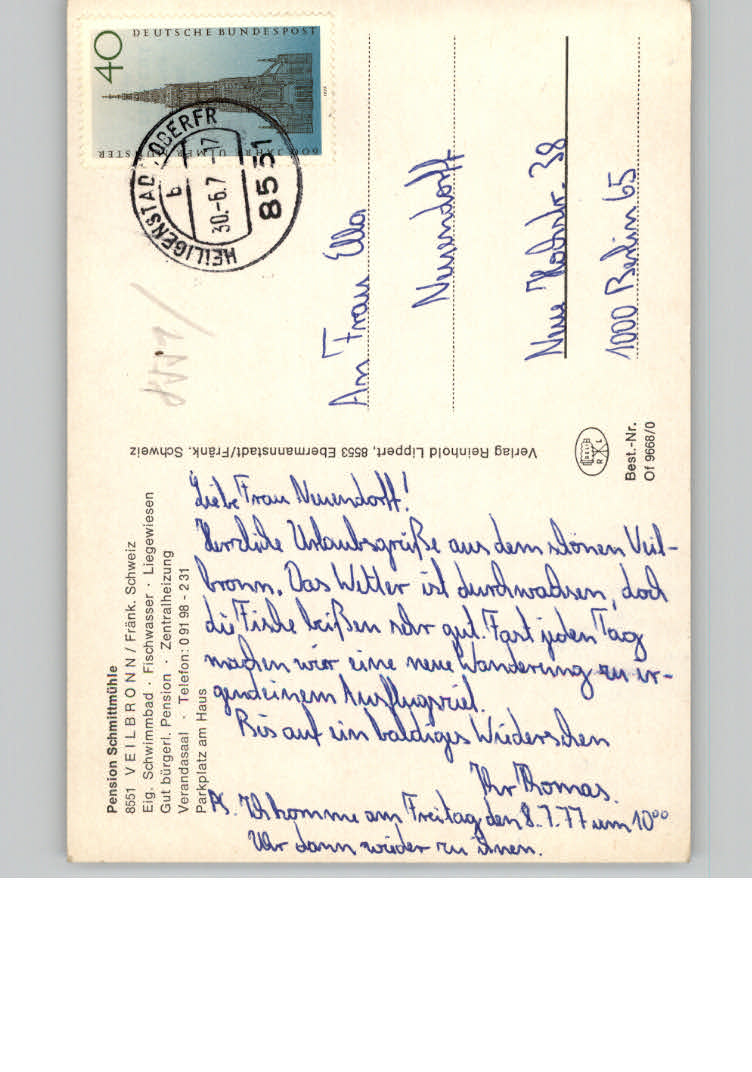 40
DEUTSCHE BUNDESPOST
600 JAHRE ULMER MÜNSTER
HEILIGENSTADT, OBERFR
b
30.-6.7 -17
8551
8551
An Frau Ella
Neuendorff
Neue Hochstr. 38
1000 Berlin 65
Verlag Reinhold Lippert, 8553 Ebermannstadt/Fränk. Schweiz
R L
Best.-Nr.
Of 9668/0
Pension Schmittmühle
8551 VEILBRONN / Fränk. Schweiz
Eig. Schwimmbad · Fischwasser · Liegewiesen
Gut bürgerl. Pension · Zentralheizung
Verandasaal · Telefon: 0 91 98 - 2 31
Parkplatz am Haus
Liebe Frau Neuendorff!
Herzliche Urlaubsgrüße aus dem schönen Veil-
bronn. Das Wetter ist durchwachsen, doch
die Fische beißen sehr gut. Fast jeden Tag
machen wir eine neue Wanderung zu ir-
gendeinem Ausflugsziel.
Bis auf ein baldiges Wiedersehen
Ihr Thomas.
PS. Ich komme am Freitag den 8.7.77 um 10⁰⁰
Uhr dann wieder zu Ihnen.